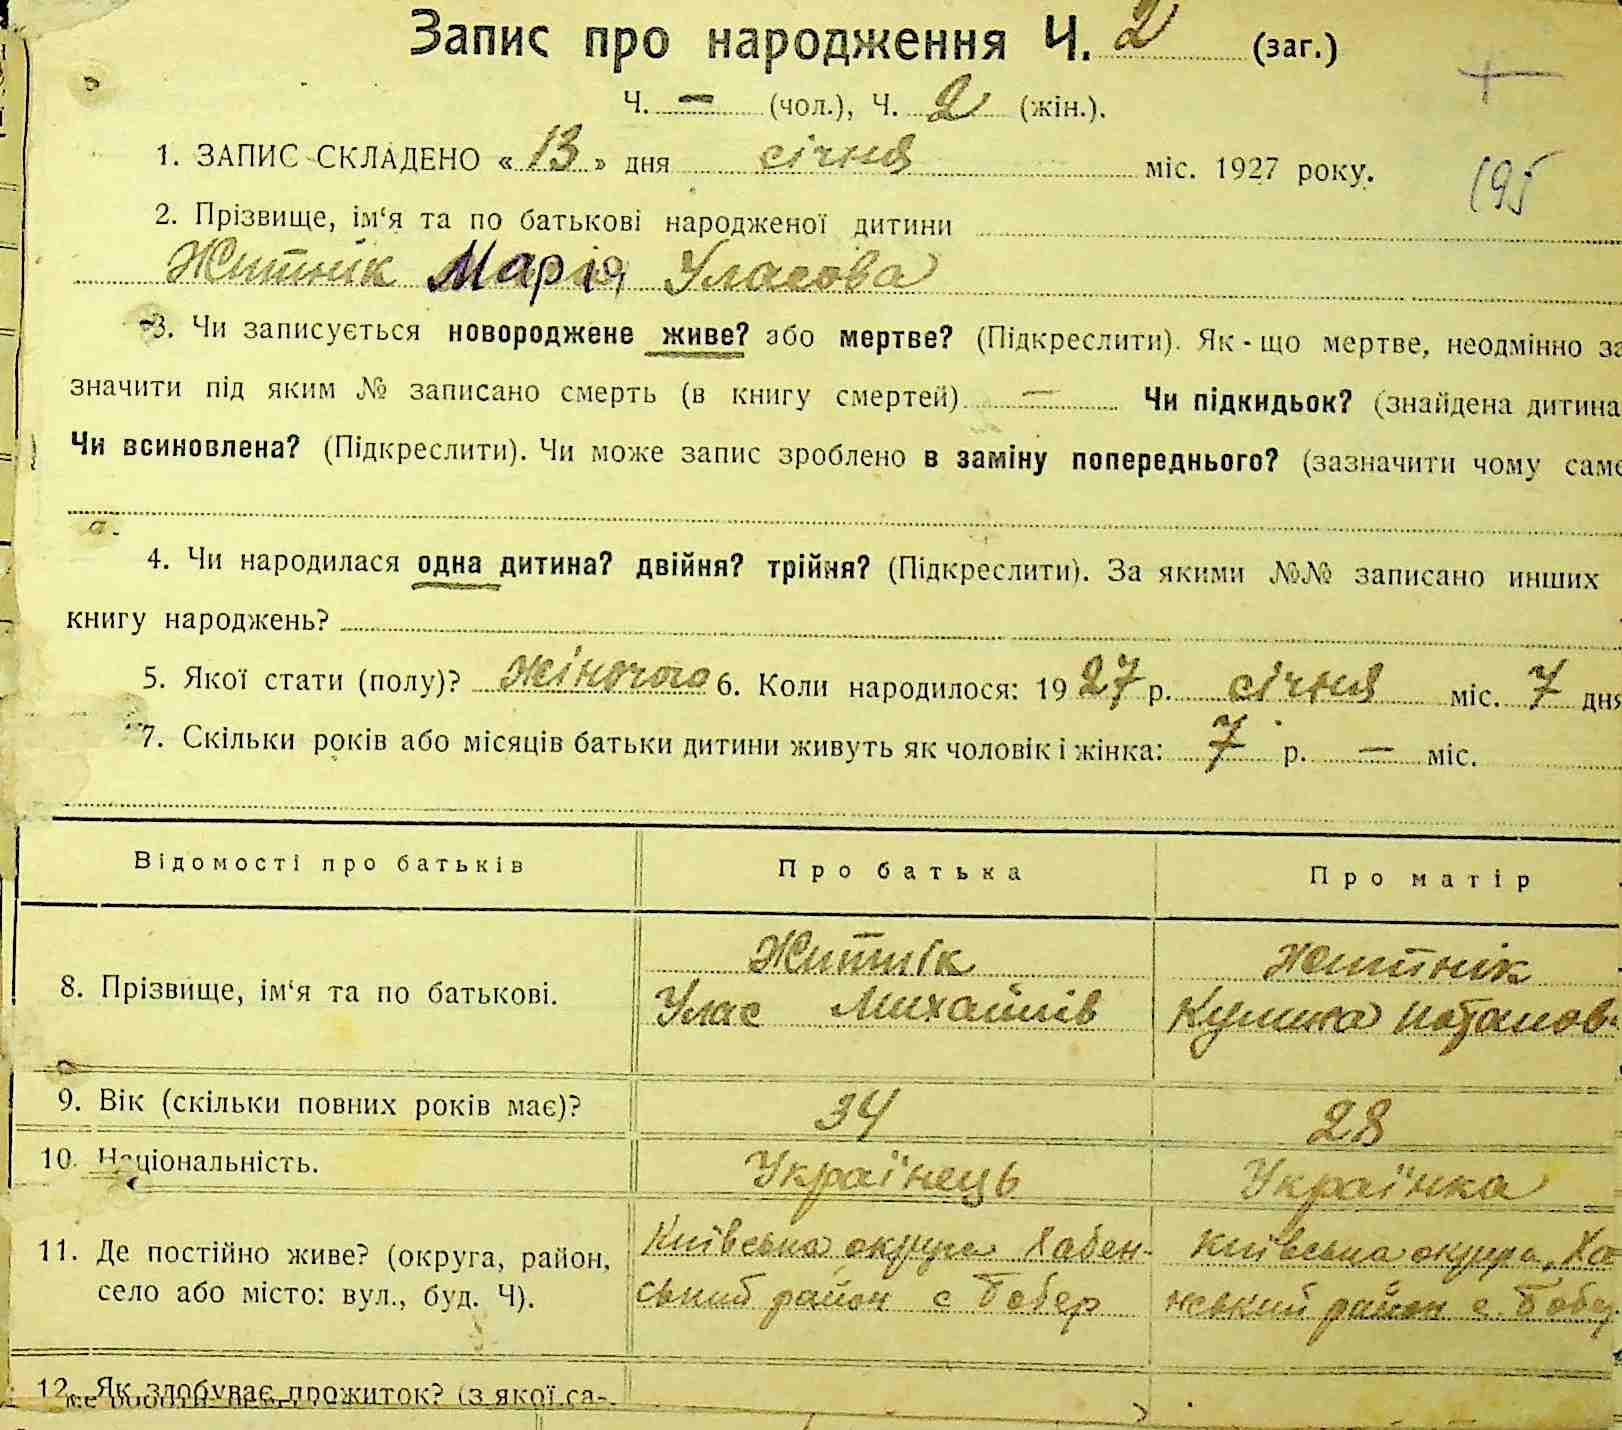 Запис про народження Ч. 2 (заг.)
Ч. — (чол.), Ч. 2 (жін.).
195
1. ЗАПИС СКЛАДЕНО «13» дня січня міс. 1927 року.
2. Прізвище, ім‘я та по батькові народженої дитини
Житнік Марія Уласова
3. Чи записується новороджене живе? або мертве? (Підкреслити). Як-що мертве, неодмінно за
значити під яким № записано смерть (в книгу смертей) — Чи підкидьок? (знайдена дитина
Чи всиновлена? (Підкреслити). Чи може запис зроблено в заміну попереднього? (зазначити чому саме
4. Чи народилася одна дитина? двійня? трійня? (Підкреслити). За якими №№ записано инших
книгу народжень?
5. Якої стати (полу)? жіночого 6. Коли народилося: 1927 р. січня міс. 7 дня
7. Скільки років або місяців батьки дитини живуть як чоловік і жінка: 7 р. — міс.
Відомості про батьків Про батька Про матір
Житнік Житнік
8. Прізвище, ім‘я та по батькові. Улас Михайлів потапов
9. Вік (скільки повних років має)? 34 28
10. Національність. Українець Українка
11. Де постійно живе? (округа, район, Київська округа Хабен- Київська округа, Ха
село або місто: вул., буд. Ч). ський район с Бобер нський район с. Бобер
12. Як здобуває прожиток? (з якої са-